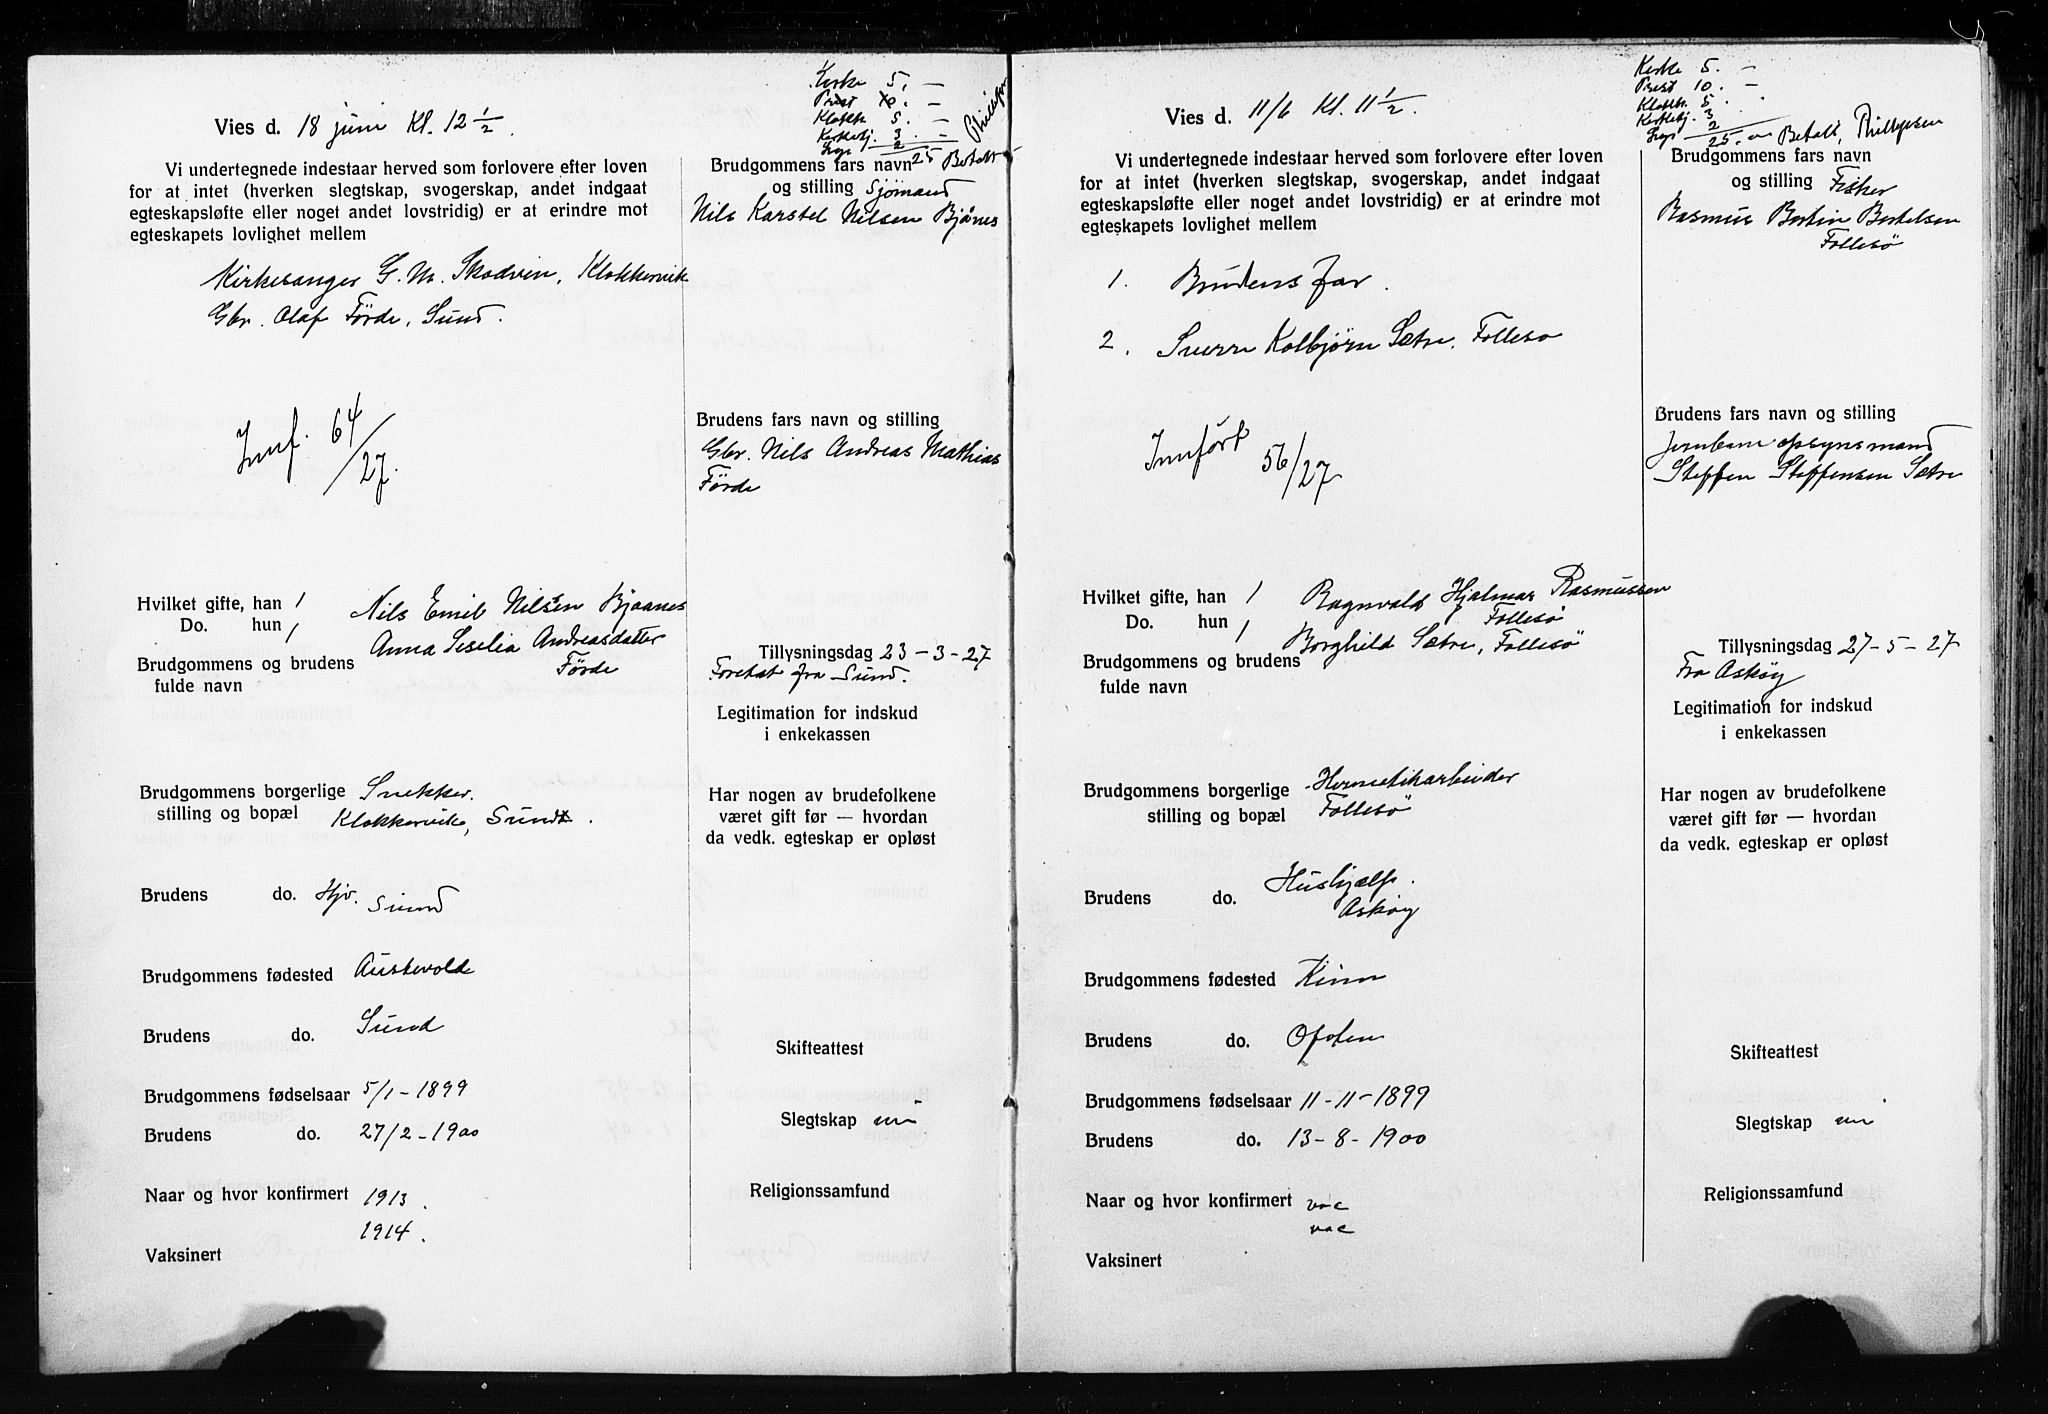 Kirke 5. —
Prest 10. —
Klokk. 5. —
Kirketj. 3. —
2
25 Betalt
Vies d. 18 juni Kl. 12 1/2.
Vi undertegnede indestaar herved som forlovere efter loven
for at intet (hverken slegtskap, svogerskap, andet indgaat
egteskapsløfte eller noget andet lovstridig) er at erindre mot
egteskapets lovlighet mellem
Kirkesanger G. M. Skodvin, Klokkervik
Gbr. Olaf Förde, Sund.
Innf. 64/27.
Brudgommens fars navn
og stilling Sjömand
Nils Karstel Nilsen Bjånes
Brudens fars navn og stilling
Gbr. Nils Andreas Mathias
Förde
Hvilket gifte, han 1
Do. hun 1
Nils Emil Nilsen Bjaanes
Anna Seselia Andreasdatter
Förde
Brudgommens og brudens
fulde navn
Tillysningsdag 23-3-27
Foretat fra Sund.
Legitimation for indskud
i enkekassen
Brudgommens borgerlige Snekker.
stilling og bopæl Klokkervik, Sund.
Har nogen av brudefolkene
været gift før — hvordan
da vedk. egteskap er opløst
Brudens do. Hjv. Sund
Brudgommens fødested Austevold
Brudens do. Sund
Skifteattest
Brudgommens fødselsaar 5/1-1899
Brudens do. 27/2-1900
Slegtskap nei
Naar og hvor konfirmert 1913.
1914.
Religionssamfund
Vaksinert
Kirke 5. —
Prest 10. —
Klokk. 5.
Kirketj. 3
2
25. — Betalt, Phillipsen
Vies d. 11/6 Kl. 11 1/2.
Vi undertegnede indestaar herved som forlovere efter loven
for at intet (hverken slegtskap, svogerskap, andet indgaat
egteskapsløfte eller noget andet lovstridig) er at erindre mot
egteskapets lovlighet mellem
1. Brudens far.
2. Sverre Kolbjørn Sætre, Follesø
Innført 56/27
Brudgommens fars navn
og stilling Fisker
Rasmus Bertin Bertelsen
Follesö
Brudens fars navn og stilling
Jernbaneopsynsmand
Steffen Steffensen Sætre
Hvilket gifte, han 1
Do. hun 1
Ragnvald Hjalmar Rasmussen
Follesö
Borghild Sætre, Follesö
Brudgommens og brudens
fulde navn
Tillysningsdag 27-5-27
Fra Askøy
Legitimation for indskud
i enkekassen
Brudgommens borgerlige Hermetikarbeider
stilling og bopæl Follesö
Har nogen av brudefolkene
været gift før — hvordan
da vedk. egteskap er opløst
Brudens do. Hushjælp.
Askøy
Brudgommens fødested Kinn
Brudens do. Ofoten
Skifteattest
Brudgommens fødselsaar 11-11-1899
Brudens do. 13-8-1900
Slegtskap nei
Naar og hvor konfirmert vac
vac
Religionssamfund
Vaksinert